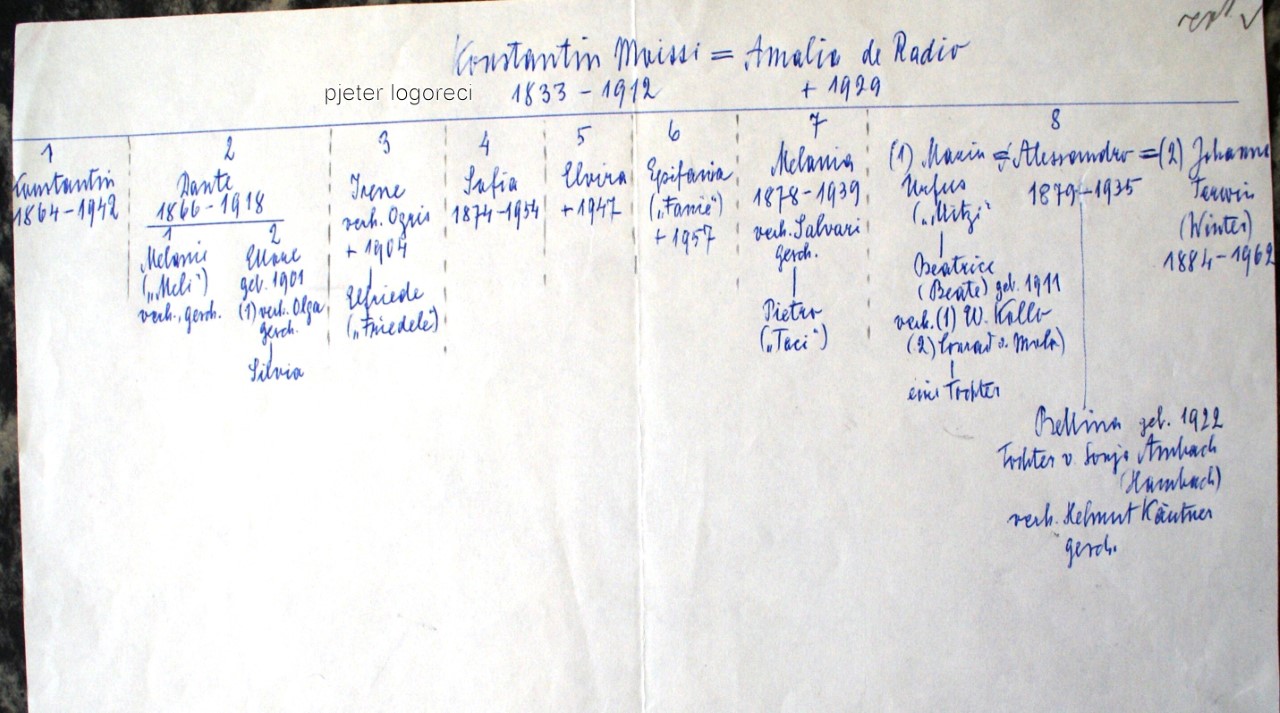 Konstantin Moissi = Amalia de Radio
1833 – 1912
+ 1929
pjeter logoreci
1
Konstantin
1864 – 1942
2
Dante
1866 – 1918
1
Melanie
("Meli")
verh., gesch.
2
geb. 1901
(1) verh. Olga
gesch.
Silvia
3
Irene
verh. Ogris
+ 1904
Elfriede
("Friedele")
4
Sofia
1874 – 1954
5
Elvira
+ 1947
6
Epifania
("Fanië")
+ 1957
7
Melania
1878 – 1939
verh. Salvari
gesch.
Pietro
("Taci")
8
(1) Maria = Alessandro = (2) Johanna
Urfus
("Mitzi")
1879 – 1935
Terwin
(Winter)
1884 – 1962
Beatrice
(Beate) geb. 1911
verh. (1) W. Kollo
(2) Conrad v. Molo)
eine Tochter
Bettina geb. 1922
Tochter v. Sonja Ambach
(Hambach)
verh. Helmut Käutner
gesch.